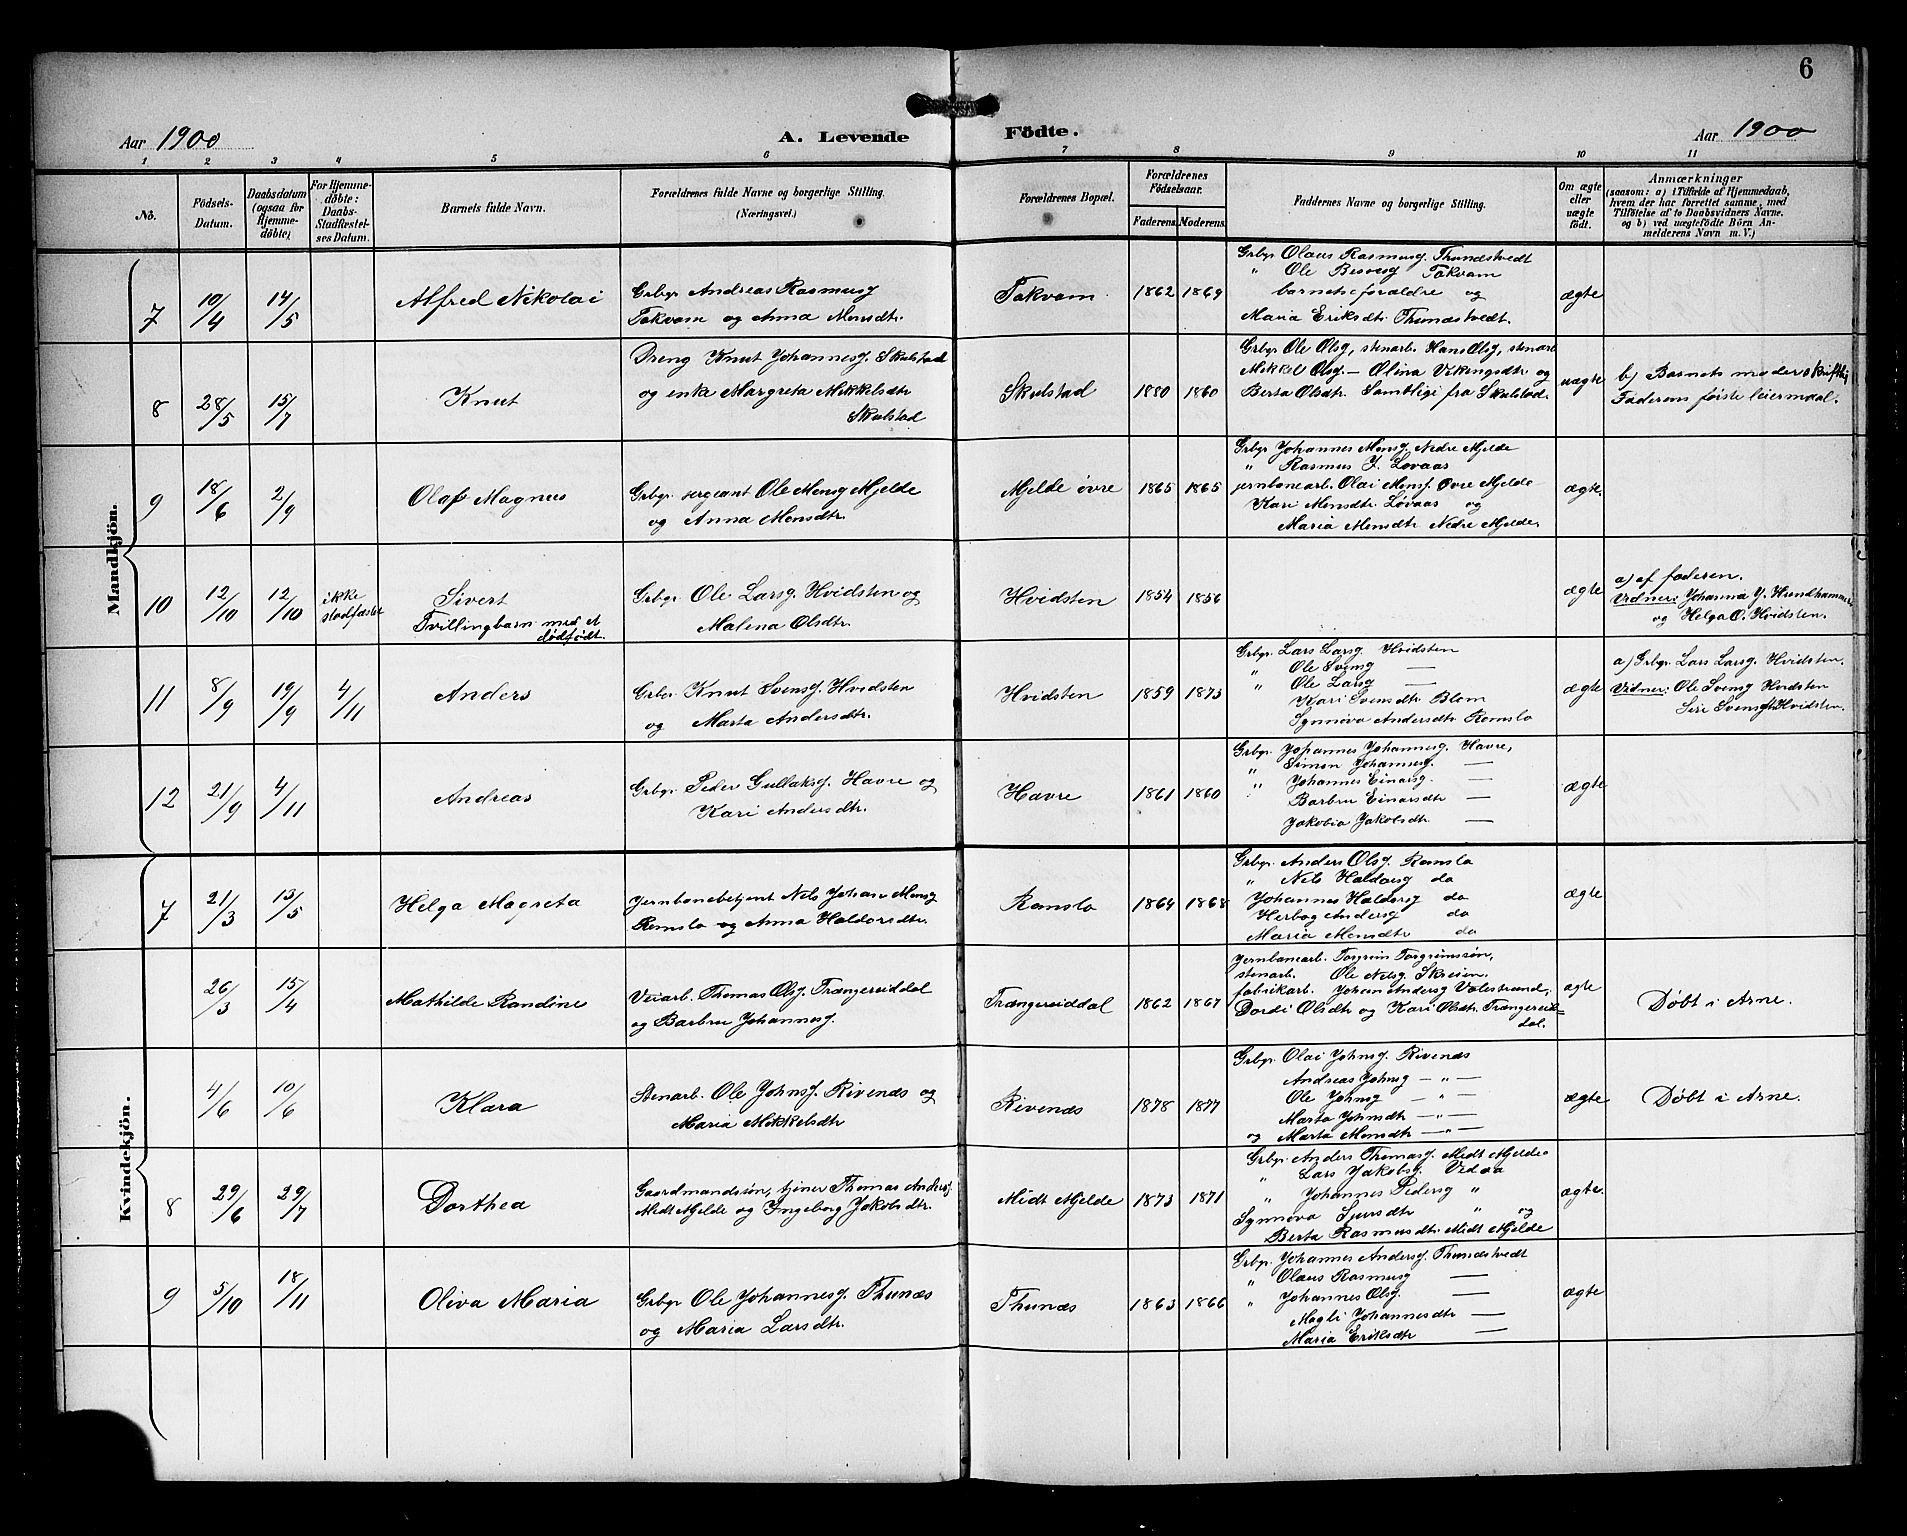 6
Aar 1900
A. Levende
Födte.
Aar 1900
1 2 3 4 5 6 7 8 9 10 11
No.
Födsels-
Datum.
Daabsdatum
(ogsaa for
Hjemme-
döbte)
For Hjemme-
döbte:
Daabs-
Stadfæstel-
ses Datum.
Barnets fulde Navn.
Forældrenes fulde Navne og borgerlige Stilling.
(Næringsvei.)
Forældrenes Bopæl.
Forældrenes
Födselsaar.
Faderens
Moderens
Faddernes Navne og borgerlige Stilling.
Om ægte
eller
uægte
födt.
Anmærkninger
(saasom: a) i Tilfælde af Hjemmedaab,
hvem der har forrettet samme, med
Tilföielse af to Daabsvidners Navne.
og b) ved uægtefödte Börn An-
melderens Navn m. V.)
Mandkjön.
7 10/4 14/5
Alfred Nikolai
Grbgr Andreas Rasmusg
Takvam og Anna Monsdtr.
Takvam
1862 1869
Grbgr Olaus Rasmusg. Thunestvedt
" Ole Takvam
barnets forældre og
Maria Eriksdtr. Thunestvedt.
ægte
8 28/5 15/7
Knut
Dreng Knut Johannesg. Skulstad
og enke Margreta Mikkelsdtr
Skulstad
Skulstad
1880 1860
Grbgr Ole Olsg, stenarb. Hans Olsg, stenarb
Mikkel Olsg — Olina Vikingsdtr og
Berta Olsdtr. Samtlige fra Skulstad.
uægte
b) Barnets moder skriftlig
Faderens første leiermaal.
9 18/6 2/9
Olaf Magnus
Grbgr. sergeant Ole Monsg Mjelde
og Anna Monsdtr.
Mjelde øvre
1865 1865
Grbgr Johannes Monsg. Nedre Mjelde
" Rasmus J. Løvaas
jernbanearb. Olai Monsg. Øvre Mjelde
Kari Monsdtr. Løvaas og
Maria Monsdtr Nedre Mjelde.
ægte.
10 12/10 12/10
ikke
stadfæstet
Sivert
Tvillingbarn med et
dødfødt.
Grbgr. Ole Larsg. Hvidsten og
Malena Olsdtr.
Hvidsten
1854 1856
ægte
a) af faderen.
Vidner: Johanna Y. Hundhammer
og Helga O. Hvidsten.
11 8/9 19/9 4/11
Anders
Grbgr Knut Svensg. Hvidsten
og Marta Andersdtr.
Hvidsten
1859 1873
Grbgr. Lars Larsg. Hvidsten
" Ole Svensg —
" Ole Larsg —
Kari Svensdtr Blom
Synnøva Andersdtr Romslo
ægte
a) Grbgr. Lars Larsg. Hvidsten.
Vidner: Ole Svensg Hvidsten
Siri Svensdtr Hvidsten.
12 21/9 4/11
Andreas
Grbgr. Peder Gullaksg. Havre og
Kari Andersdtr.
Havre
1861 1860
Grbgr. Johannes Johannesg. Havre,
" Simon Johannesg. —
" Johannes Einarsg. —
Barbru Einarsdtr —
Jakobia Jakobsdtr. —
ægte
Kvindekjön.
7 21/3 13/5
Helga Magreta
Jernbanebetjent Nils Johan Monsg
Romslo og Anna Haldorsdtr.
Romslo
1864 1868
Grbgr. Anders Olsg. Romslo
" Nils Haldorsg do
Johannes Haldorsg do
Herbog Andersg do
Maria Monsdtr do
ægte
26/3 15/4
Mathilde Randine
Veiarb. Thomas Olsg. Trængereiddal
og Barbru Johannesg.
Trængereiddal
1862 1867
Jernbanearb. Torgrim Torgrimssøn,
stenarb. Ole Nilsg. Skreien.
fabrikarb. Johan Andersg Valestrand,
Dordi Olsdtr og Kari Olsdtr. Trængereid-
dal.
ægte
Døbt i Arne.
4/6 10/6
Klara
Stenarb. Ole Johnsg. Rivenes og
Maria Mikkelsdtr
Rivenes
1878 1877
Grbgr. Olai Johnsg. Rivenes
Andreas Johnsg — " —
Ole Johnsg — " —
Marta Johnsdtr — " —
og Marta Monsdtr — " —
ægte
Døbt i Arne.
8 29/6 29/7
Dorthea
Gaardmandssøn, tjener Thomas Andersg.
Midt Mjelde og Ingeborg Jakobsdtr.
Midt Mjelde
1873 1871
Grbgr. Anders Thomasg. Midt Mjelde.
" Lars Jakobsg. Vedaa
" Johannes Pedersg "
Synnøva Sjursdtr " og
Berta Rasmusdtr. Midt Mjelde
ægte.
9 5/10 18/11
Oliva Maria
Grbgr Ole Johannesg. Thunæs
og Maria Larsdtr.
Thunæs
1863 1866
Grbgr. Johannes Andersg. Thunestvedt
" Olaus Rasmusg —
" Johannes Olsg. —
Magli Johannesdtr —
Maria Eriksdtr —
ægte